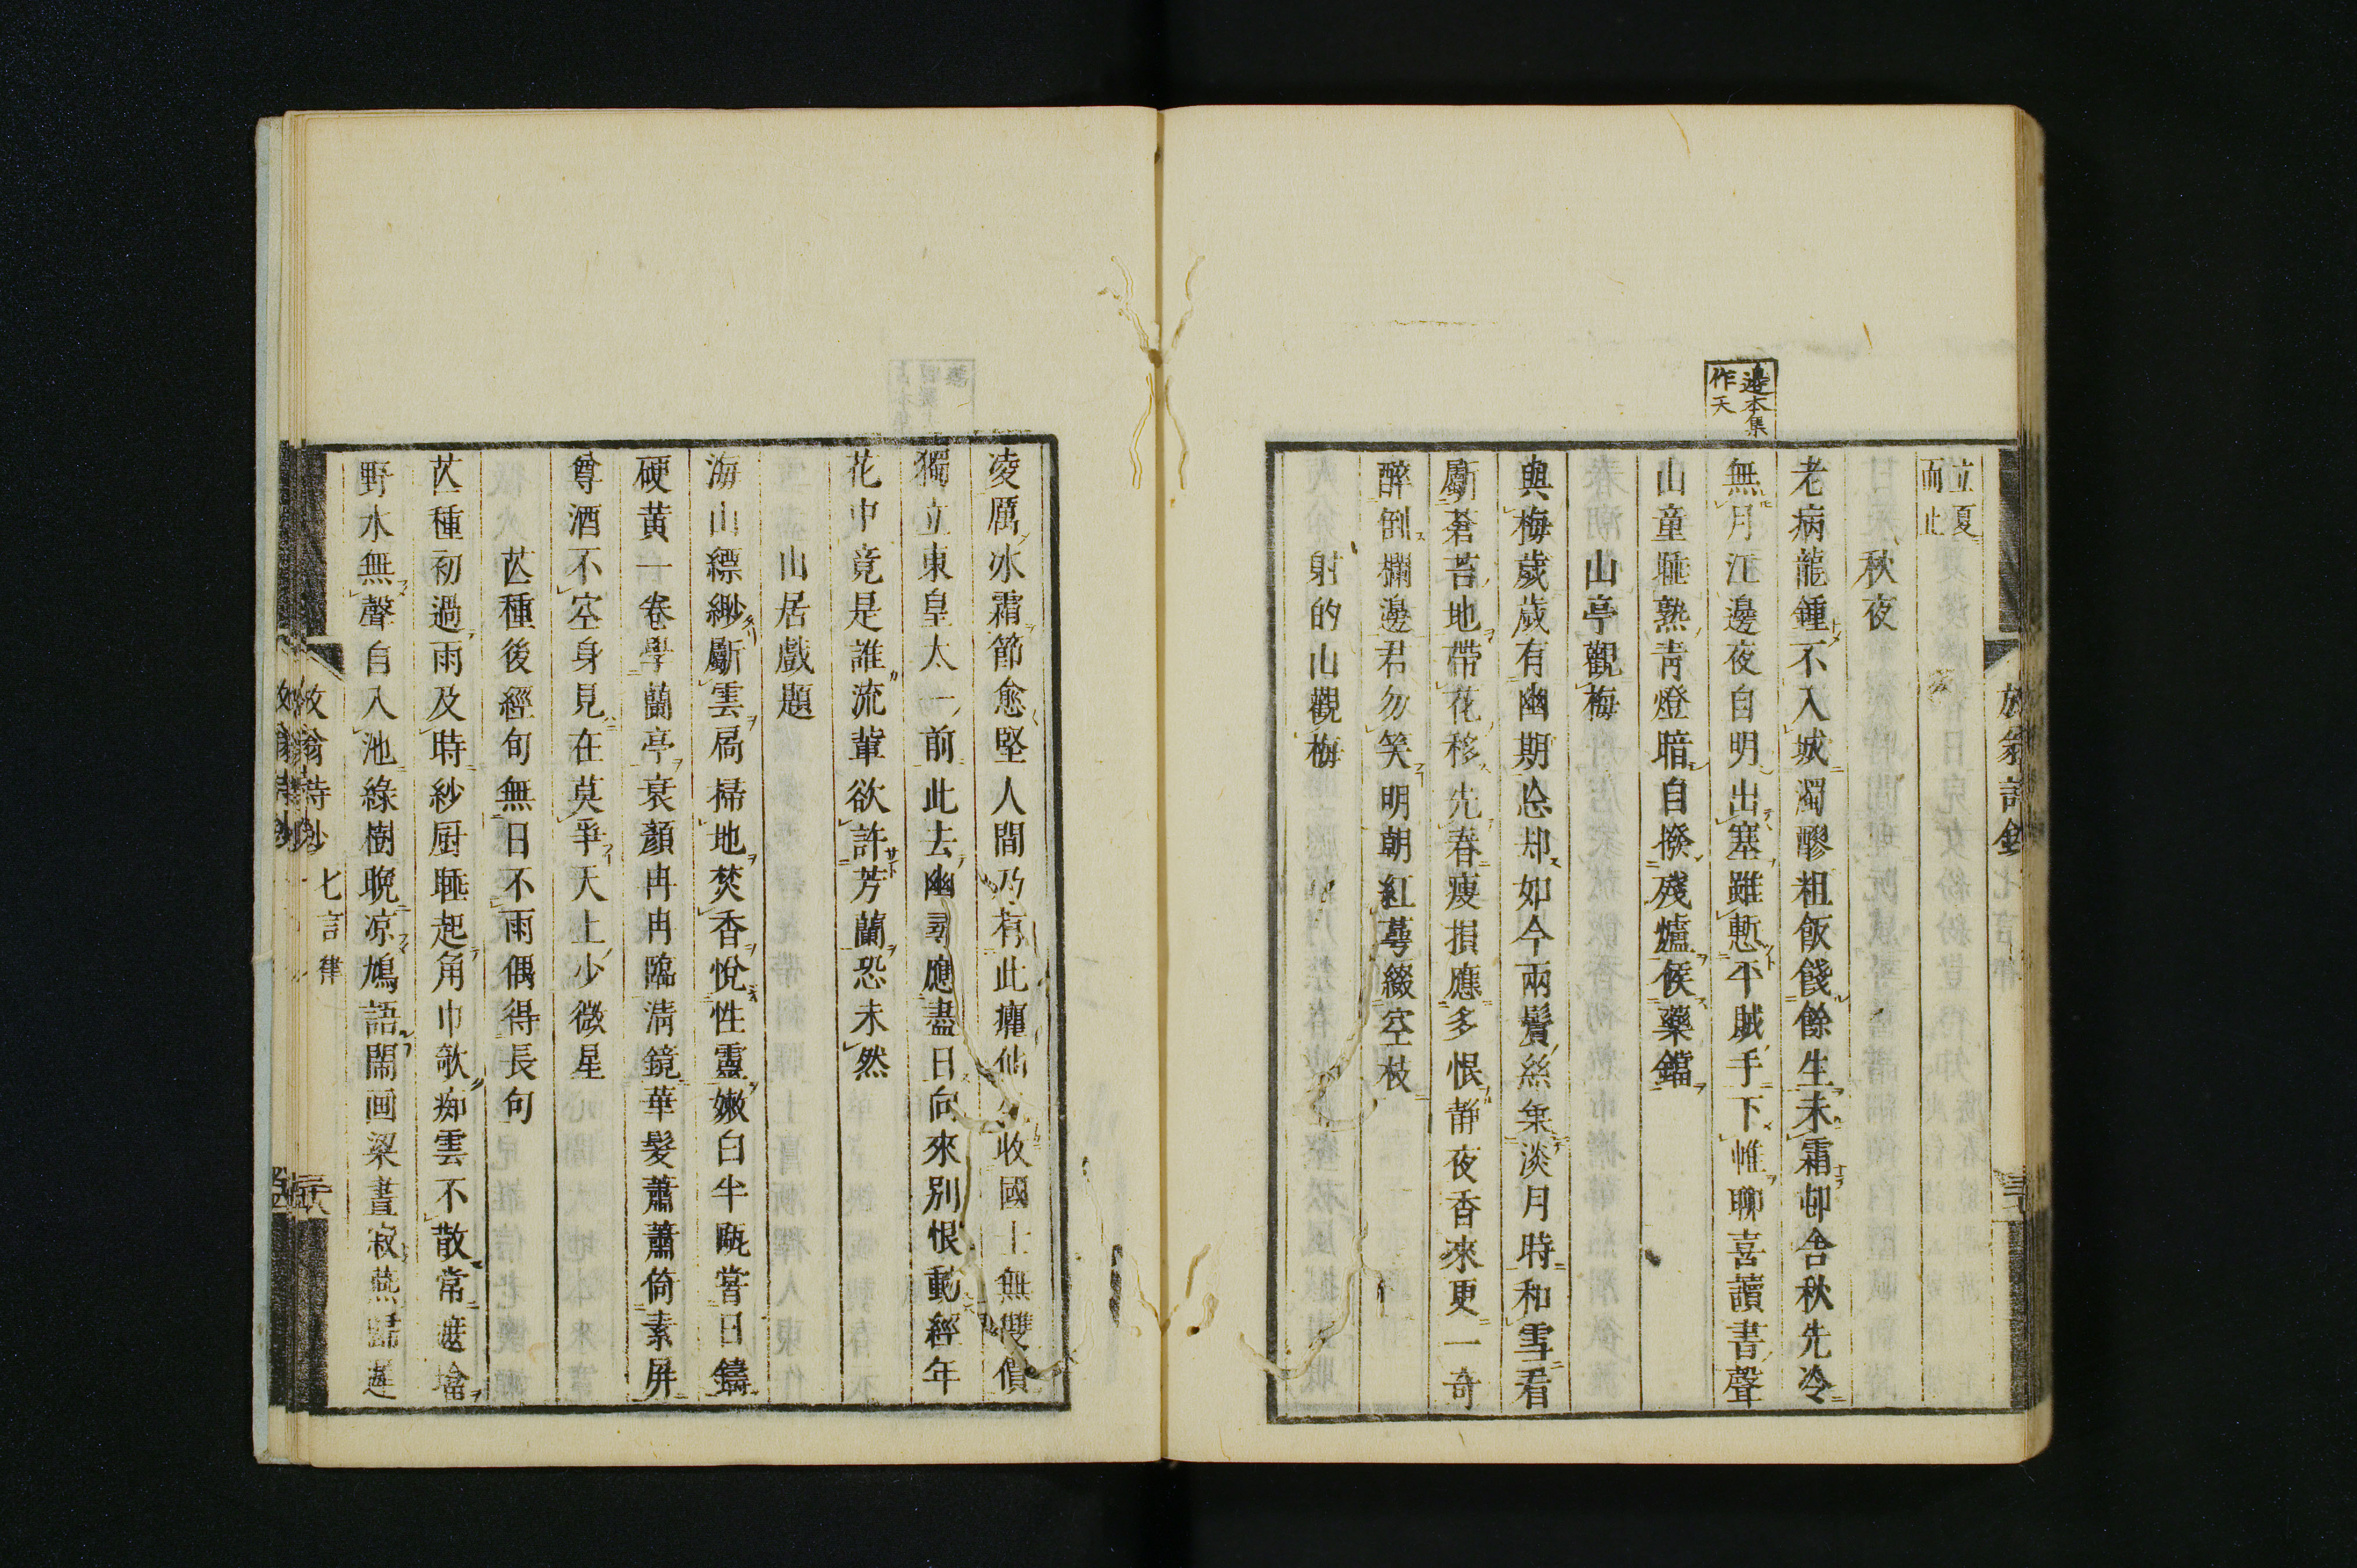 邊本集
作天
立夏
而止
秋夜
老病龍鍾不入城濁醪粗飯餞餘生未霜卻舍秋先冷
無月江邊夜自明出塞雖慙平賊手下帷聊喜讀書聲
山童睡熟青燈暗自撥殘爐候藥鐺
山亭觀梅
與梅歲歲有幽期忩却如今兩鬢絲乗淡月時和雪看
斸蒼苔地帶花移先春瘦損應多恨静夜香來更一奇
醉倒欄邊君勿笑明朝紅萼綴空枝
射的山觀梅
凌厲冰霜節愈堅人間乃有此癯仙收國士無雙價
獨立東皇太一前此去幽尋應盡日向來別恨動經年
花中竟是誰流輩欲許芳蘭恐未然
山居戲題
海山縹緲斸雲扃掃地焚香悅性靈嫩白半甌嘗日鑄
硬黃一卷學蘭亭衰顏冉冉臨清鏡華髮蕭蕭倚素屏
尊酒不空身見在莫爭天上少微星
芒種後經旬無日不雨偶得長句
芒種初過雨及時紗厨睡起角巾欹痴雲不散常遮塔
野水無聲自入池綠樹晚凉鳩語閙画梁晝寂燕歸遲
放翁詩鈔
七言律